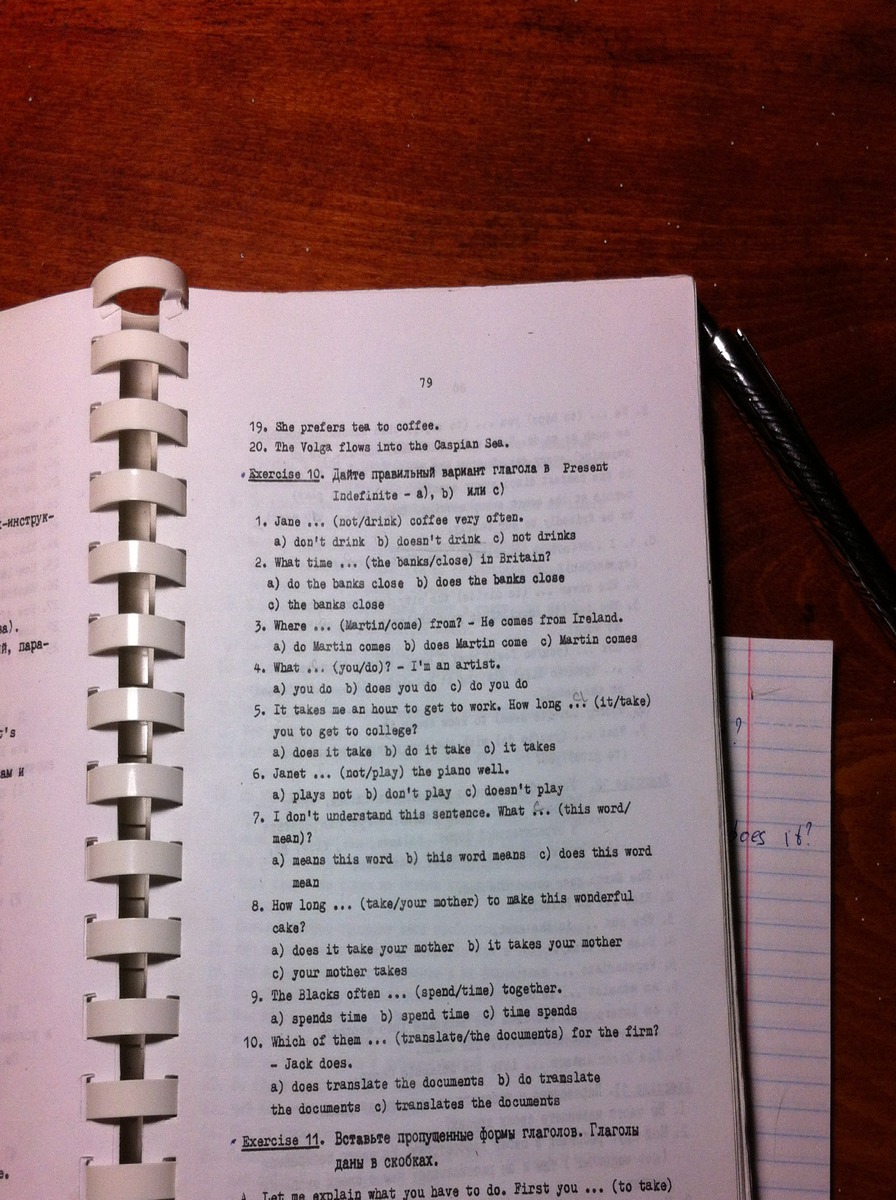 79
19. She prefers tea to coffee.
20. The Volga flows into the Caspian Sea.
Exercise 10. Дайте правильный вариант глагола в Present
Indefinite - a), b) или c)
1. Jane ... (not/drink) coffee very often.
a) don't drink b) doesn't drink c) not drinks
2. What time ... (the banks/close) in Britain?
a) do the banks close b) does the banks close
c) the banks close
3. Where ... (Martin/come) from? - He comes from Ireland.
a) do Martin comes b) does Martin come c) Martin comes
4. What ... (you/do)? - I'm an artist.
a) you do b) does you do c) do you do
5. It takes me an hour to get to work. How long ... (it/take)
you to get to college?
a) does it take b) do it take c) it takes
6. Janet ... (not/play) the piano well.
a) plays not b) don't play c) doesn't play
7. I don't understand this sentence. What ... (this word/
mean)?
a) means this word b) this word means c) does this word
mean
8. How long ... (take/your mother) to make this wonderful
cake?
a) does it take your mother b) it takes your mother
c) your mother takes
9. The Blacks often ... (spend/time) together.
a) spends time b) spend time c) time spends
10. Which of them ... (translate/the documents) for the firm?
- Jack does.
a) does translate the documents b) do translate
the documents c) translates the documents
Exercise 11. Вставьте пропущенные формы глаголов. Глаголы
даны в скобках.
Let me explain what you have to do. First you ... (to take)
-инструк-
ва).
й, пара-
t's
ам и
?
does it?